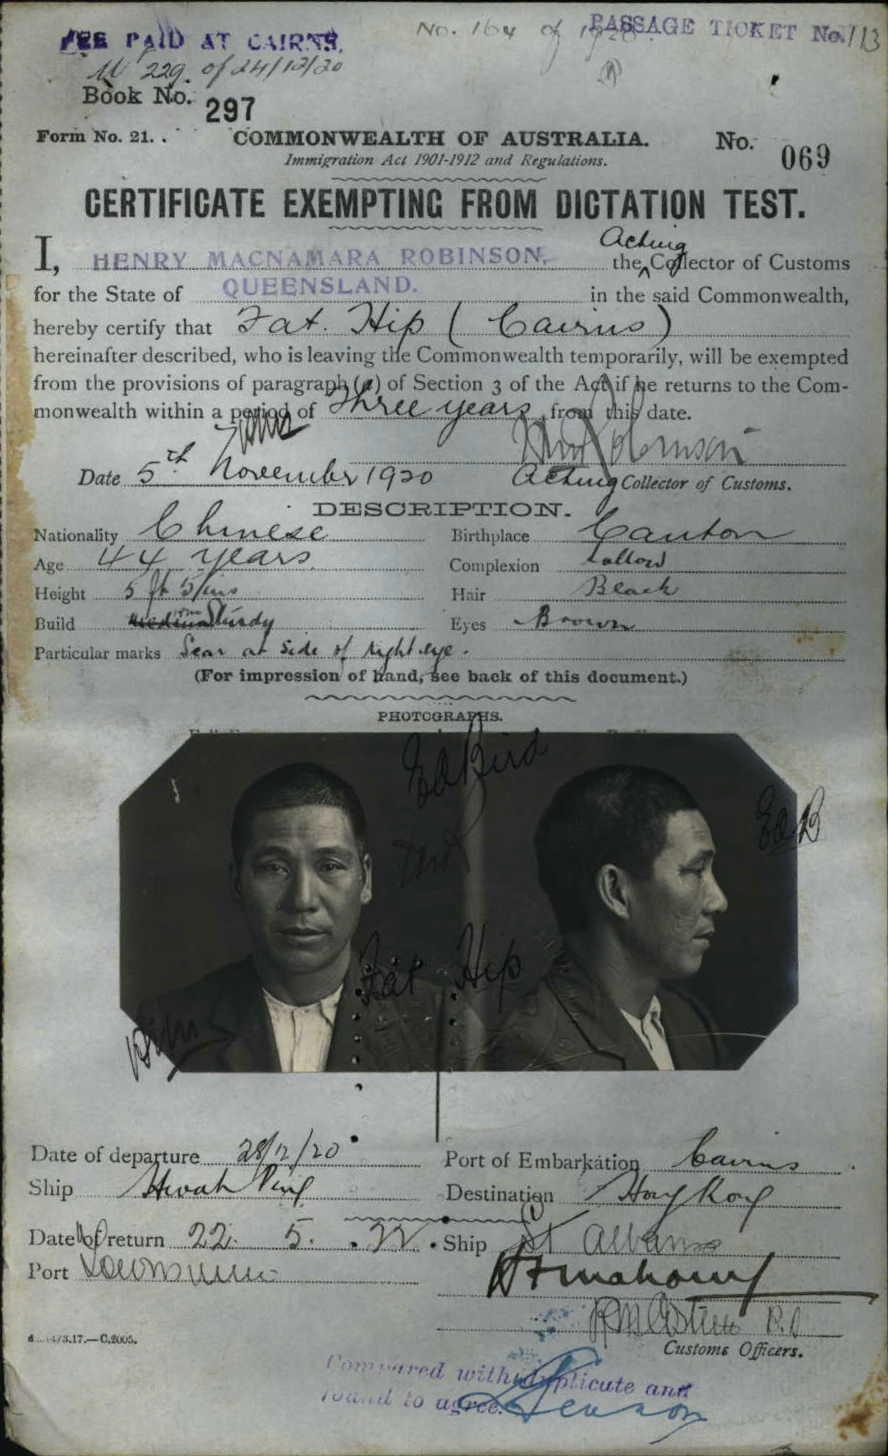 FEE PAID AT CAIRNS.
No. 164 of 1920
PASSAGE TICKET No. 113
229. of 24/12/20
Book No. 297
Form No. 21.
COMMONWEALTH OF AUSTRALIA.
No. 069
Immigration Act 1901-1912 and Regulations.
CERTIFICATE EXEMPTING FROM DICTATION TEST.
I, HENRY MACNAMARA ROBINSON, the Acting Collector of Customs
for the State of QUEENSLAND. in the said Commonwealth,
hereby certify that Fat. Hip (Cairns)
hereinafter described, who is leaving the Commonwealth temporarily, will be exempted
from the provisions of paragraph (a) of Section 3 of the Act if he returns to the Com-
monwealth within a period of Three years from this date.
Robinson
Date 5th November 1920 Acting Collector of Customs.
DESCRIPTION.
Nationality Chinese Birthplace Canton
Age 44 years Complexion Sallow
Height 5 ft 5 ins Hair Black
Build medium Sturdy Eyes Brown
Particular marks Scar at side of right eye.
(For impression of hand, see back of this document.)
PHOTOGRAPHS.
Ed Bird
EdB
Fat Hip
Date of departure 28/12/20 Port of Embarkation Cairns
Ship Hwah Ping Destination Hong Kong
Date of return 22. 5. 22. Ship St Albans
Port Townsville
Customs Officers.
C.2005.
Compared with duplicate and
found to agree.